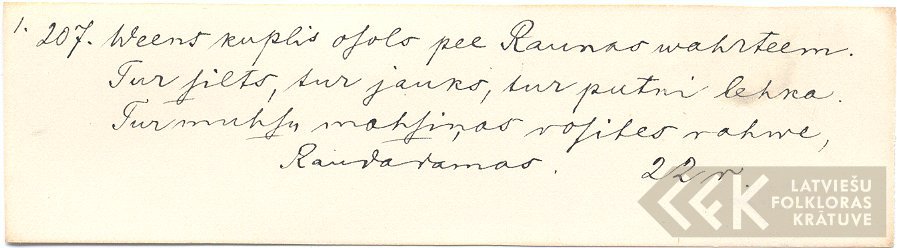 1. 207. Weens kuplis osols pee Raunas wahrteem.
Tur silts, tur jauks, tur putni lehka.
Tur muhsu mahsiņas rosites rahwe,
Raudadamas. 22 r.
LATVIEŠU
FOLKLORAS
KRĀTUVE